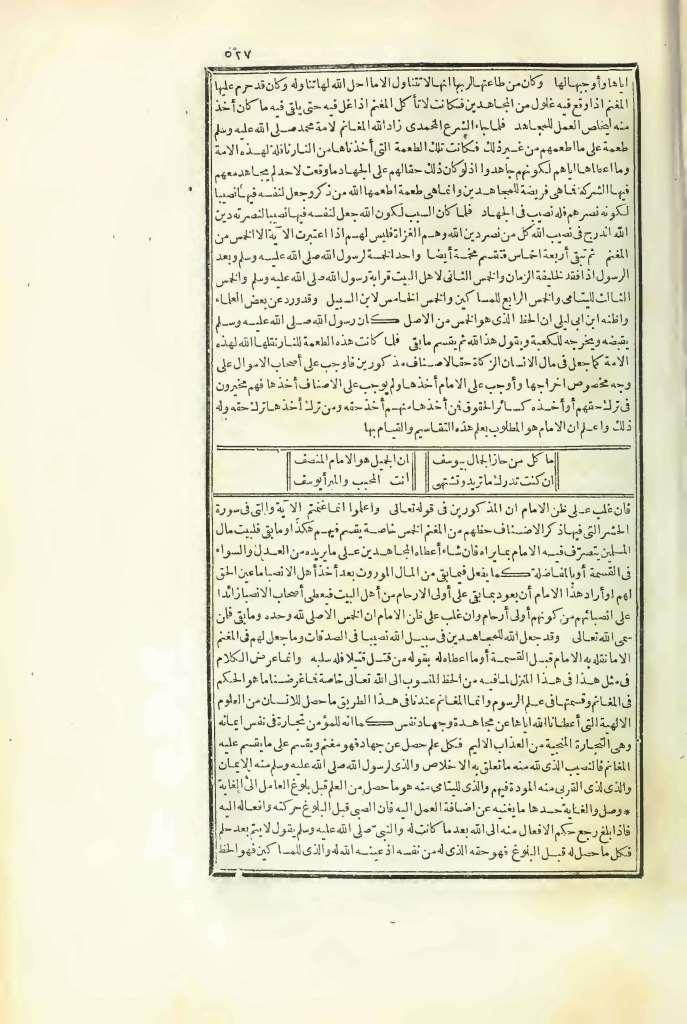 ٥٢٧
اياها وأوجبها لها وكان من طاعتها لربها انها لا تتناول الا ما احل الله لها تناوله وكان قد حرم عليها
المغنم اذا وقع فيه غلول من المجاهدين فكانت لا تأكل المغنم اذا غل فيه حتى يلقى فيه ما كان أخذ
منه ليخاص العمل للمجاهد فلما جاء الشرع المحمدى زاد الله المغانم لامة محمد صلى الله عليه وسلم
طعمة على ما اطعمهم من غير ذلك فكانت تلك الطعمة التى أخذناها من النار نافلة لهذه الامة
وما اعطاها اياهم لكونهم جاهدوا اذ لو كان ذلك حقا لهم على الجهاد ما وقعت لاحد لم يجاهد معهم
فيها الشركة فما هى فريضة للمجاهدين وانما هى طعمة اطعمها الله من ذكر وجعل لنفسه فيها نصيبا
لكونه نصرهم فله نصيب فى الجهاد فلما كان السبب لكون الله جعل لنفسه فيها نصيبا لنصرته دين
الله اندرج فى نصيب الله كل من نصر دين الله وهم الغزاة فليس لهم اذا اعتبرت الآية الا الخمس من
المغنم ثم تبقى أربعة اخماس فتقسم مخمسة أيضا واحد الخمسة لرسول الله صلى الله عليه وسلم وبعد
الرسول اذا فقد لخليفة الزمان والخمس الثانى لاهل البيت قرابة رسول الله صلى الله عليه وسلم والخمس
الثالث لليتامى والخمس الرابع للمساكين والخمس الخامس لابن السبيل وقد ورد عن بعض العلماء
واظنه ابن ابى ليلى ان الحظ الذى هو الخمس من الاصل كان رسول الله صلى الله عليه وسلم
يقبضه ويخرجه للكعبة ويقول هذا لله ثم يقسم ما بقى فلما كانت هذه الطعمة للنار نقلها الله لهذه
الامة كما جعل فى مال الانسان الزكاة حقا لاصناف مذكورين فاوجب على أصحاب الاموال على
وجه مخصوص اخراجها وأوجب على الامام أخذها ولم يوجب على الاصناف أخذها فهم مخيرون
فى ترك حقهم أو أخذه كسائر الحقوق فمن أخذها منهم أخذ حقه ومن ترك أخذها ترك حقه وله
ذلك واعلم ان الامام هو المطلوب بعلم هذه التقاسيم والقيام بها
ما كل من حاز الجمال بيوسف ان الجميل هو الامام المنصف
ان كنت تدرك ما تريد وتشتهى أنت المحبب والمبرأ يوسف
فان غلب على ظن الامام ان المذكورين فى قوله تعالى واعلموا انما غنمتم الآية والتى فى سورة
الحشر التى فيها ذكر الاصناف حظهم من المغنم الخمس خاصة يقسم فيهم هكذا وما بقى فلبيت مال
المسلمين يتصرف فيه الامام بما يراه فان شاء أعطاه المجاهدين على ما يريده من العدل والسواء
فى القسمة أو بالمفاضلة كما يفعل فيما بقى من المال الموروث بعد أخذ أهل الانصباء ما عين الحق
لهم او أراد هذا الامام أن يعود بما بقى على أولى الارحام من أهل البيت فيعطى أصحاب الانصباء زائدا
على انصبائهم من كونهم أولى أرحام وان غلب على ظن الامام ان الخمس الاصلى لله وحده وما بقى فلمن
سمى الله تعالى وقد جعل الله للمجاهدين فى سبيل الله نصيبا فى الصدقات وما جعل لهم فى المغنم
الا ما نفله به الامام قبل القسمة أو ما اعطاه له بقوله من قتل قتيلا فله سلبه وانما عرض الكلام
فى مثل هذا فى هذا المنزل لما فيه من الحظ المنسوب الى الله تعالى خاصة فما غرضنا ما هو الحكم
فى المغانم وقسمتها فى علم الرسوم وانما المغانم عندنا فى هذا الطريق ما حصل للانسان من العلوم
الالهية التى أعطانا الله اياها عن مجاهدة وجهاد نفس كما انه للمؤمن تجارة فى نفس ايمانه
وهى التجارة المنجية من العذاب الاليم فكل علم حصل عن جهاد فهو مغنم ويقسم على ما يقسم عليه
المغانم فالنصيب الذى لله منه ما تعلق به الاخلاص والذى لرسول الله صلى الله عليه وسلم منه الايمان
والذى لذى القربى منه المودة فيهم والذى لليتامى منه هو ما حصل من العلم قبل بلوغ العامل الى الغاية
* وصل والغاية حدها ما يغنيه عن اضافة العمل اليه فان الصبى قبل البلوغ حركته وافعاله اليه
فاذا بلغ رجع حكم الافعال منه الى الله بعد ما كانت له والنبى صلى الله عليه وسلم يقول لا يتم بعد حلم
فكل ما حصل له قبل البلوغ فهو حقه الذى له من نفسه اذ عينه الله له والذى للمساكين فهو الحظ